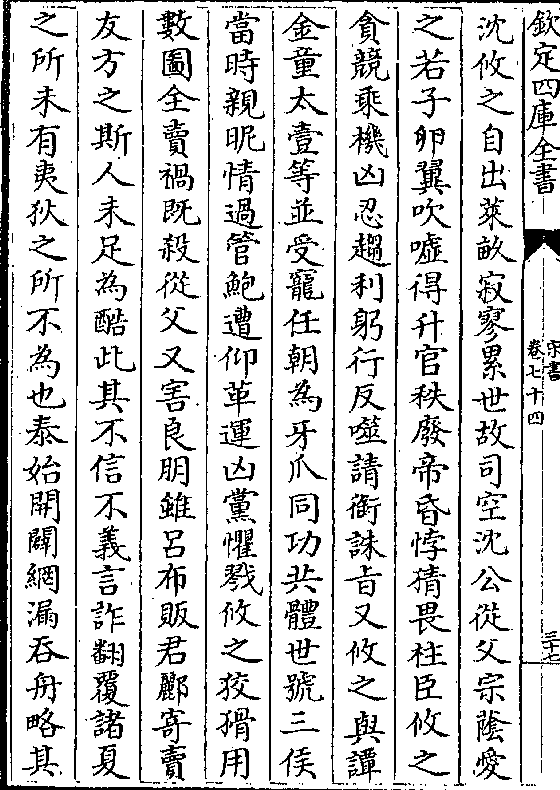 欽定四庫全書
宋書
卷七十四
三十七
沈攸之自出萊畝寂寥累世故司空沈公從父宗䕃愛
之若子卵翼吹噓得升官秩廢帝昏悖猜畏柱臣攸之
貪競乘機凶忍趨利躬行反噬請銜誅旨又攸之與譚
金童太壹等並受寵任朝為牙爪同功共體世號三侯
當時親昵情過管鮑遭仰革運凶黨懼戮攸之狡猾用
數圖全賣禍既殺從父又害良朋雖呂布販君酈寄賣
友方之斯人未足為酷此其不信不義言詐翻覆諸夏
之所未有夷狄之所不為也泰始開闢網漏吞舟略其